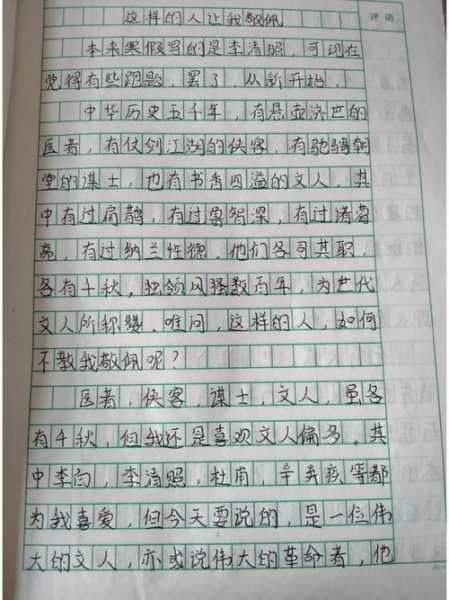 这样的人让我敬佩
评语
本来寒假写的是李清照，可现在
觉得有些跑题，罢了，从新开始。
中华历史五千年，有悬壶济世的
医者，有仗剑江湖的侠客，有驰骋朝
堂的谋士，也有书香四溢的文人。其
中有过扁鹊，有过鲁智深，有过诸葛
亮，有过纳兰性德。他们各司其职，
各有千秋，独领风骚数百年，为世代
文人所称赞。唯问，这样的人，如何
不教我敬佩呢？
医者，侠客，谋士，文人，虽各
有千秋，但我还是喜欢文人偏多。其
中李白，李清照，杜甫，辛弃疾等都
为我喜爱，但今天要说的，是一位伟
大的文人，亦或说伟大的革命者，他